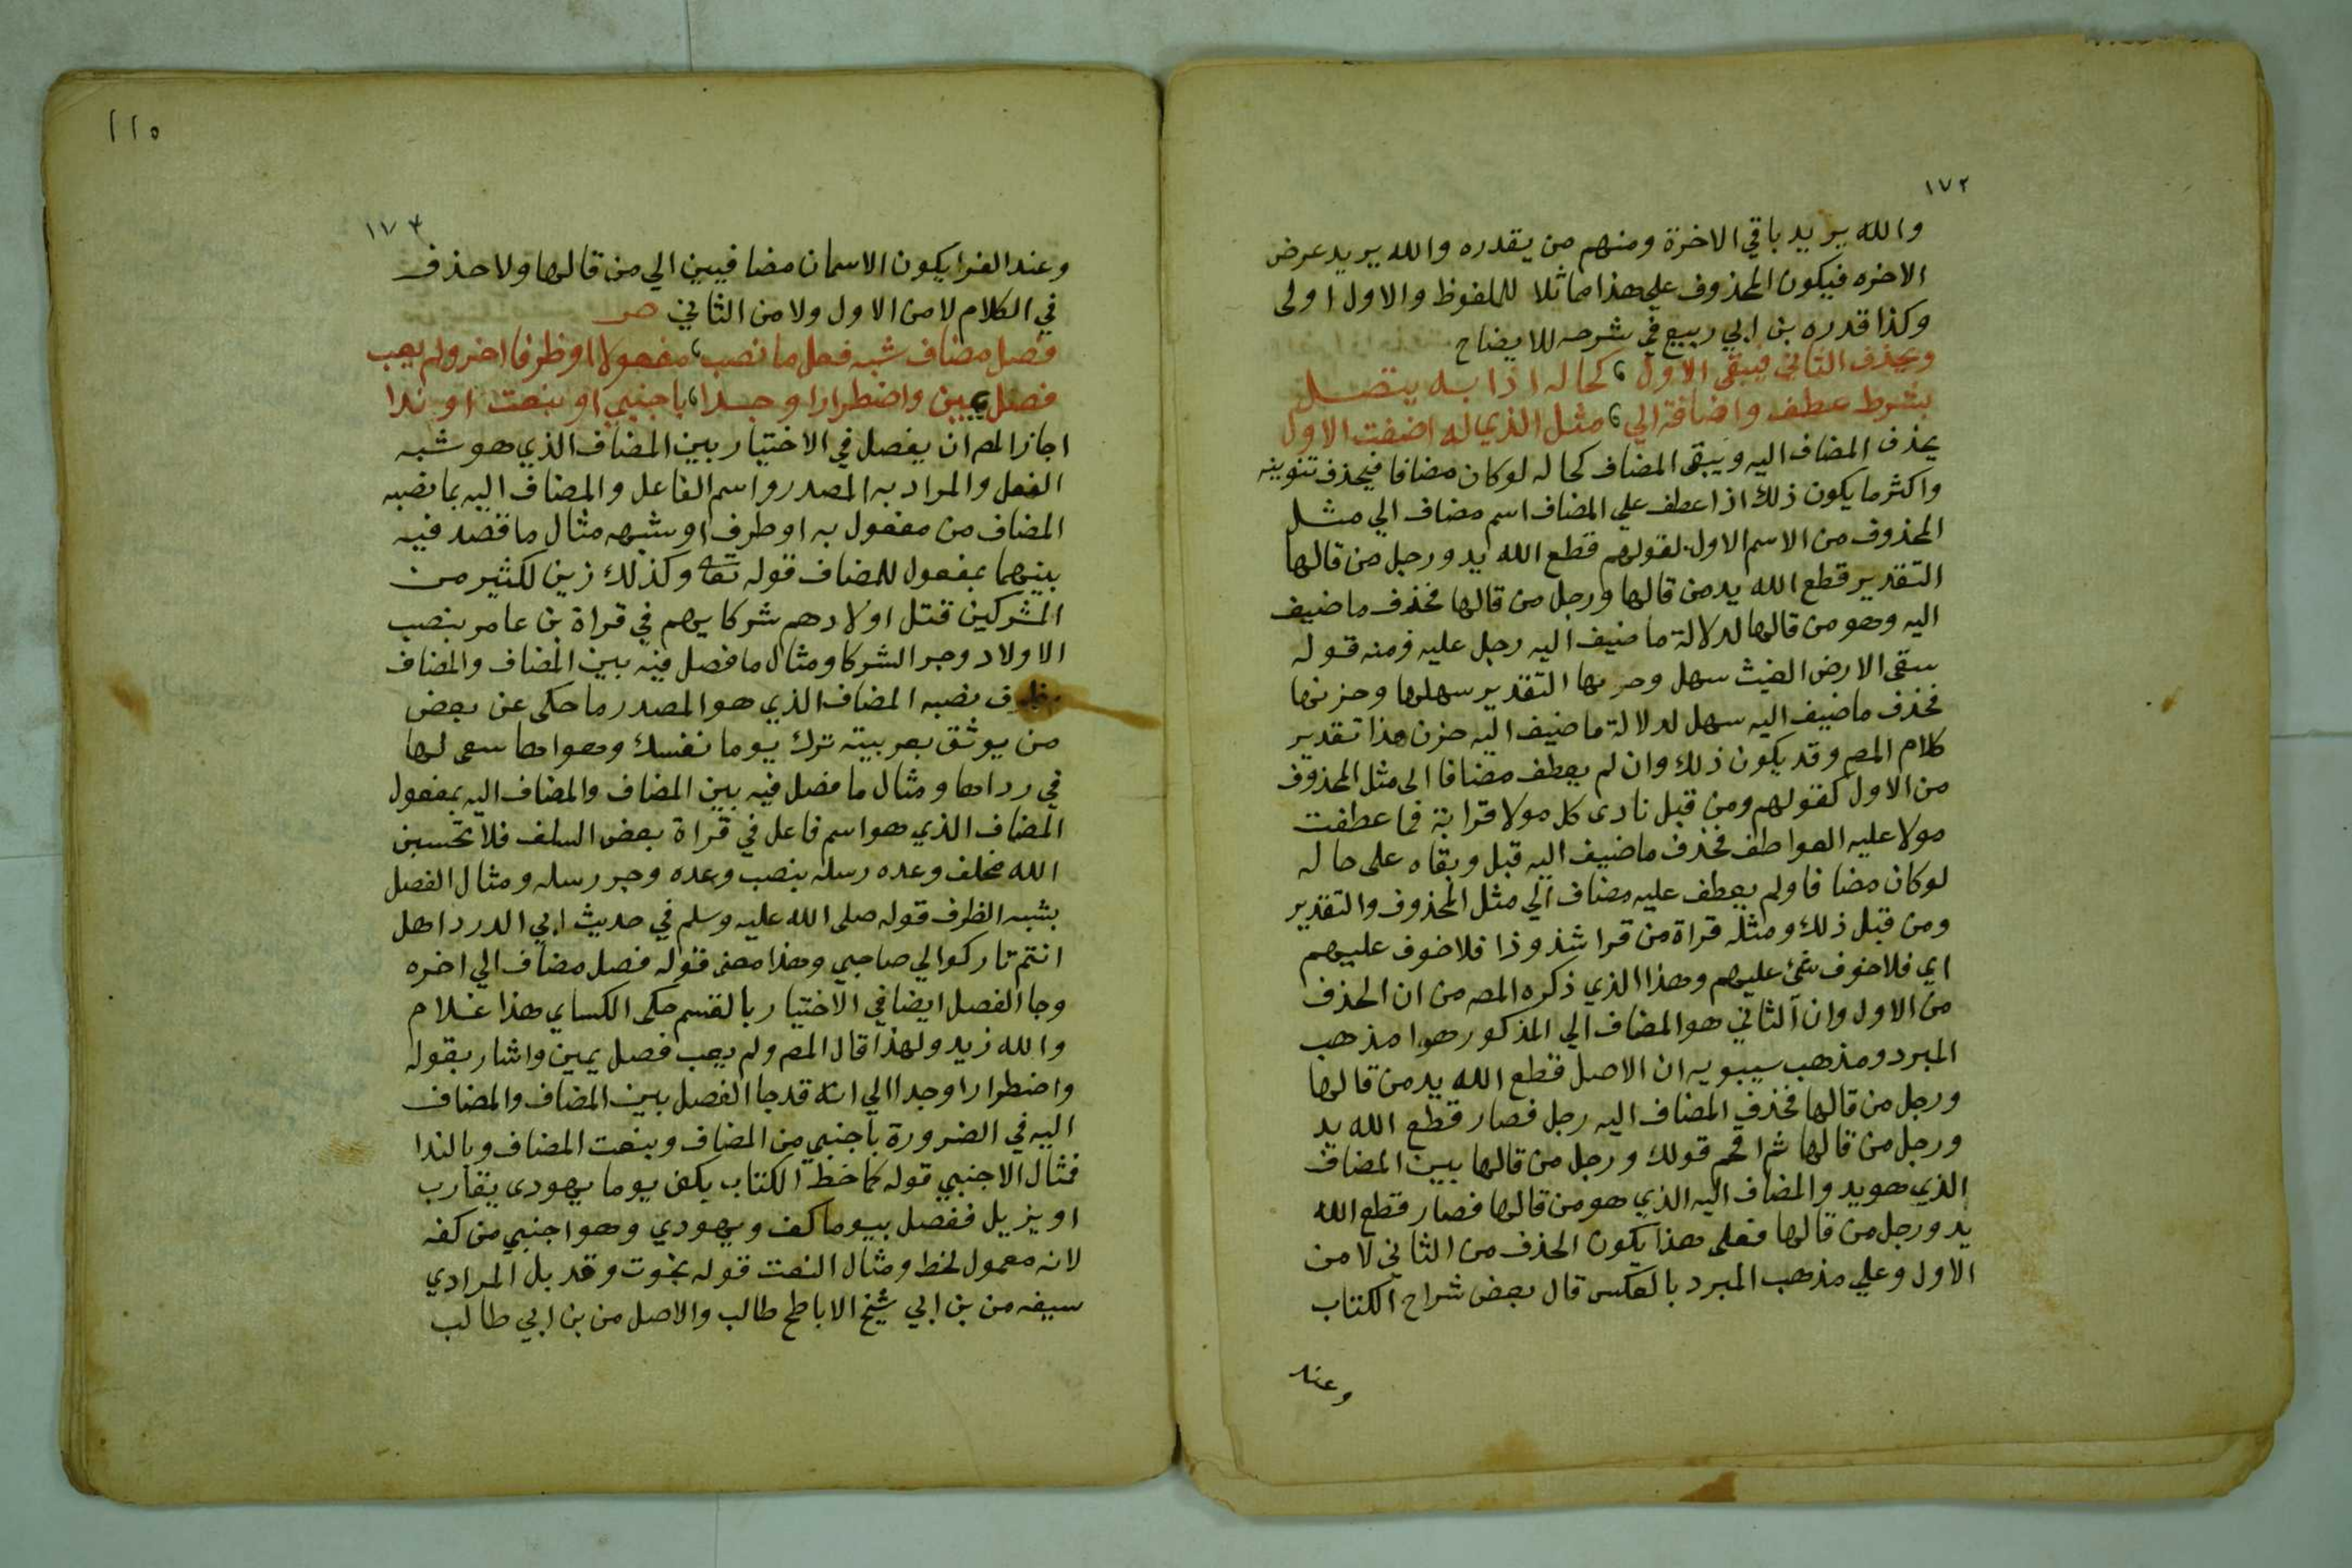 ١٧٢
والله يريد باقي الاخرة ومنهم من يقدره والله يريد عرض
الاخره فيكون المحذوف علي هذا مماثلا للملفوظ والاول اولى
وكذا قدره بن ابي ربيع في شرحه للايضاح
ويحذف الثاني فيبقى الاول ، كحاله اذا به يتصل
بشرط عطف واضافة الي ، مثل الذي له اضفت الاول
يحذف المضاف اليه ويبقى المضاف كحاله لوكان مضافا فيحذف تنوينه
واكثر ما يكون ذلك اذا عطف علي المضاف اسم مضاف الي مثل
المحذوف من الاسم الاول لقولهم قطع الله يد ورجل من قالها
التقدير قطع الله يد من قالها ورجل من قالها فحذف ما ضيف
اليه وهو من قالها لدلالة ما ضيف اليه رجل عليه ومنه قوله
سقى الارض الغيث سهل وحزنها التقدير سهلها وحزنها
فحذف ما ضيف اليه سهل لدلالة ما ضيف اليه حزن هذا تقدير
كلام المص وقد يكون ذلك وان لم يعطف مضافا الى مثل المحذوف
من الاول كقولهم ومن قبل نادى كل مولا قرابة فما عطفت
مولا عليه العواطف فحذف ما ضيف اليه قبل وبقاه على حاله
لوكان مضافا ولم يعطف عليه مضاف الي مثل المحذوف والتقدير
ومن قبل ذلك ومثله قراة من قرا شذوذا فلا خوف عليهم
اي فلا خوف شئ عليهم وهذا الذي ذكره المص من ان الحذف
من الاول وان الثاني هو المضاف الي المذكور هوا مذهب
المبرد ومذهب سيبويه ان الاصل قطع الله يد من قالها
ورجل من قالها فحذف المضاف اليه رجل فصار قطع الله يد
ورجل من قالها ثم اقحم قولك ورجل من قالها بين المضاف
الذي هو يد والمضاف اليه الذي هو من قالها فصار قطع الله
يد ورجل من قالها فعلى هذا يكون الحذف من الثاني لا من
الاول وعلي مذهب المبرد بالعكس قال بعض شراح الكتاب
وعند
١١٥
١٧٣
وعند الفرا يكون الاسمان مضافيين الي من قالها ولا حذف
في الكلام لا من الاول ولا من الثاني ص
فصل مضاف شبه فعل ما نصب ، مفعولا او ظرفا اخر ولم يعب
فصل يمين واضطرارا وجدا ، باجنبي او بنعت او ندا
اجاز المص ان يفصل في الاختيار بين المضاف الذي هو شبه
الفعل والمراد به المصدر واسم الفاعل والمضاف اليه بما نصبه
المضاف من مفعول به او ظرف او شبهه مثال ما قصد فيه
بينهما بمفعول للمضاف قوله تعالى وكذلك زين لكثير من
المشركين قتل اولادهم شركايهم في قراة بن عامر بنصب
الاولاد وجر الشركا ومثال ما فصل فيه بين المضاف والمضاف
بظرف نصبه المضاف الذي هو المصدر ما حكى عن بعض
من يوثق بعربيته ترك يوما نفسك وهواها سعى لها
في رداها ومثال ما فصل فيه بين المضاف والمضاف اليه بمفعول
المضاف الذي هو اسم فاعل في قراة بعض السلف فلا تحسبن
الله مخلف وعده رسله بنصب وعده وجر رسله ومثال الفصل
بشبه الظرف قوله صلى الله عليه وسلم في حديث ابي الدردا هل
انتم تاركوا لي صاحبي وهذا معنى قوله فصل مضاف الي اخره
وجا الفصل ايضا في الاختيار بالقسم حكى الكساي هذا غلام
والله زيد ولهذا قال المص ولم يعب فصل يمين واشار بقوله
واضطرارا وجدا الي انه قد جا الفصل بين المضاف والمضاف
اليه في الضرورة باجنبي من المضاف وبنعت المضاف وبالندا
فمثال الاجنبي قوله كما خط الكتاب بكف يوما يهودى يقارب
او يزيل ففصل بيوما كف ويهودي وهو اجنبي من كفه
لانه معمول لخط ومثال النعت قوله نجوت وقد بل المرادي
سيفه من بن ابي شيخ الاباطح طالب والاصل من بن ابي طالب